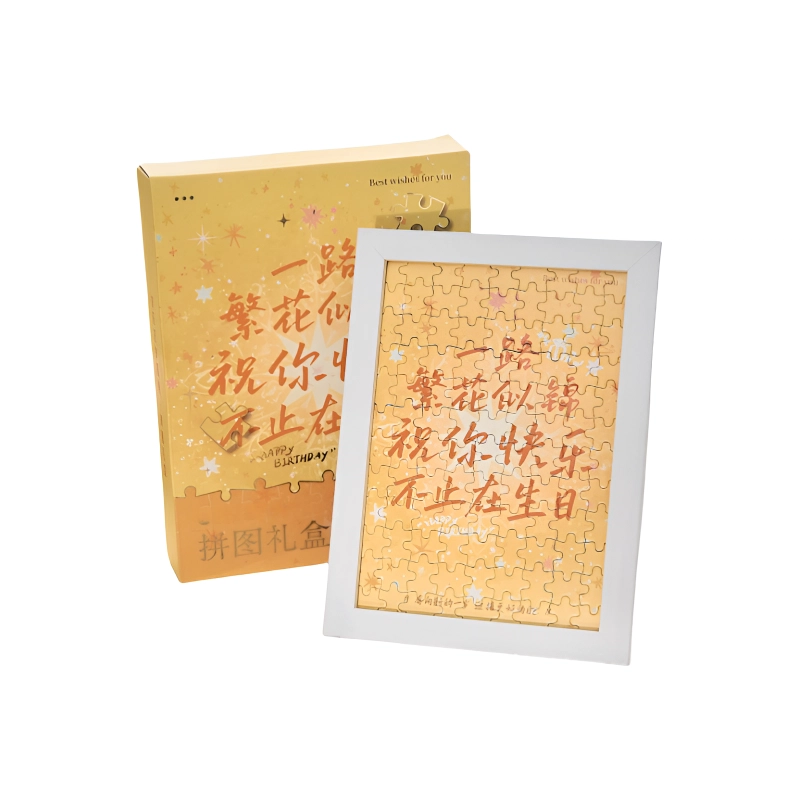 Best wishes for you
一路
繁花似
祝你快
不止在
HAPPY
BIRTHDAY
拼图礼盒
Best wishes for you
一路
繁花似锦
祝你快乐
不止在生日
HAPPY